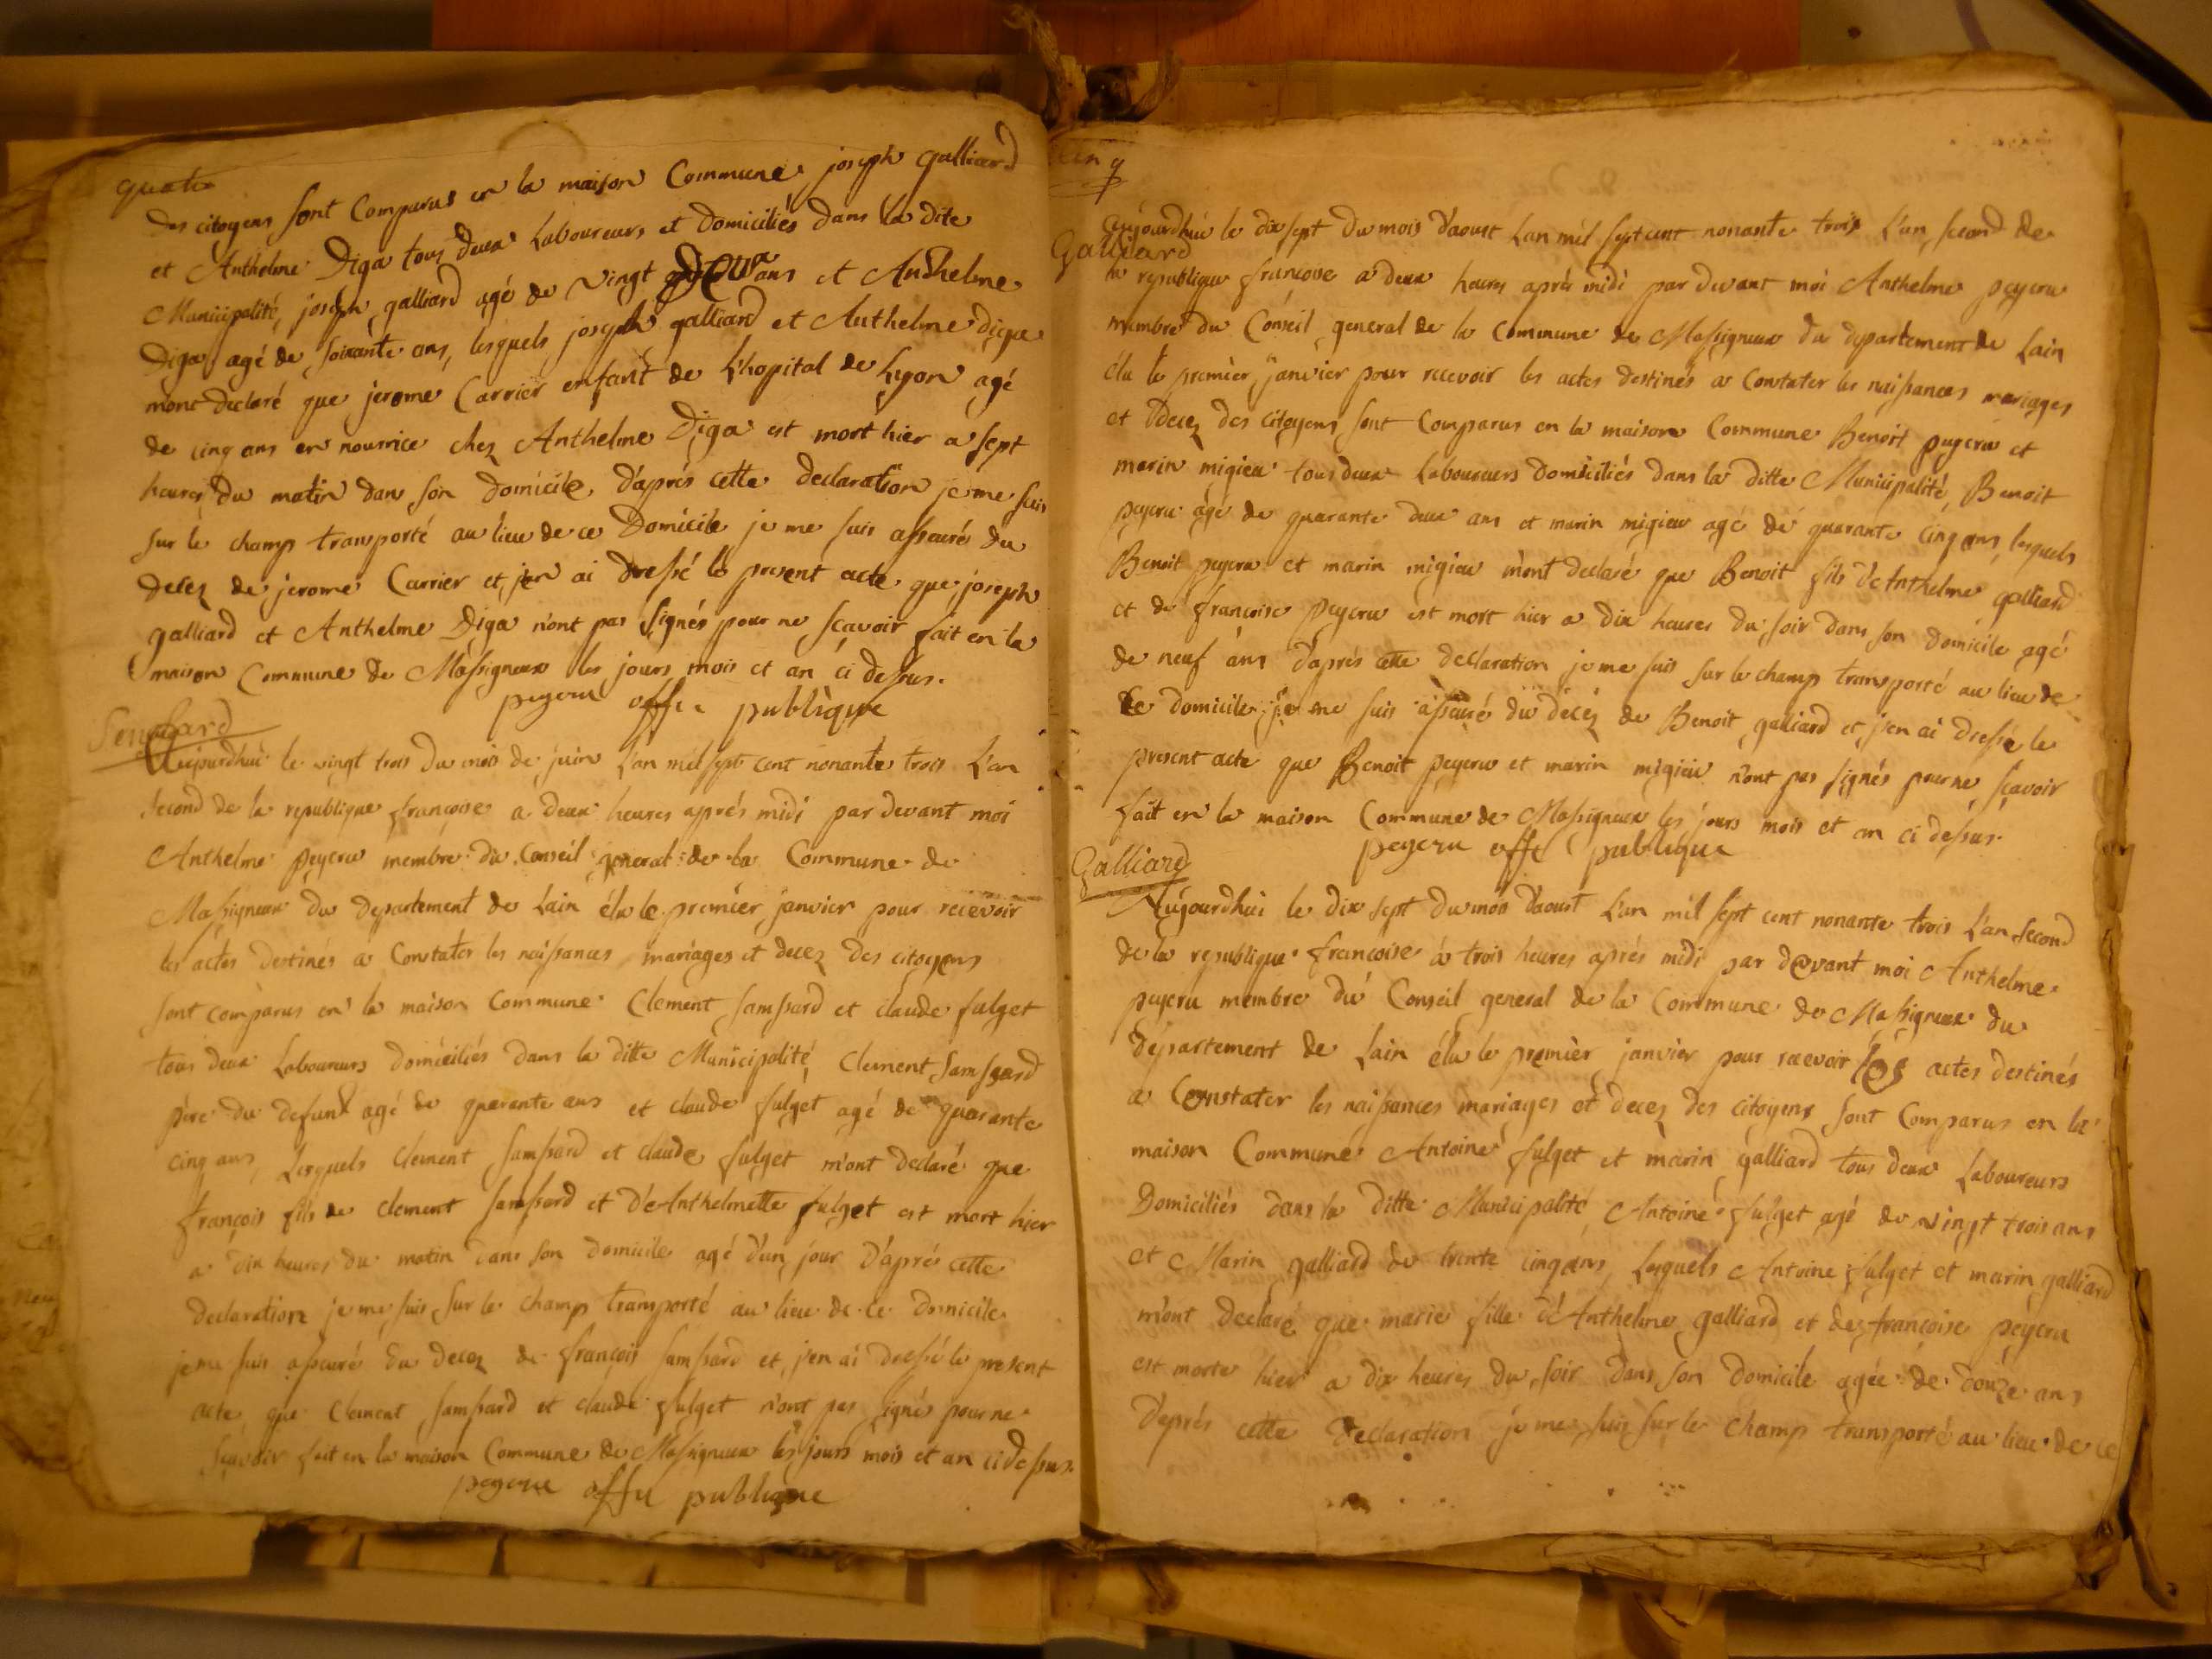 quatre
des citoyens sont Comparus en la maison Commune joseph galliard
et Anthelme Diga tous deux Laboureurs et Domiciliés dans la dite
Municipalité, joseph galliard agé de vingt ans et Anthelme
Diga agé de soixante ans, lesquels joseph galliard et Anthelme diga
mont declaré que jerome Carrier enfant de L'hopital de Lyon agé
de cinq ans en nourrice chez Anthelme Diga est mort hier a sept
heures du matin dans son domicile, d'aprés cette declaration je me suis
sur le champ transporté au lieu de ce Domicile je me suis assuré du
decez de jerome Carrier et j'en ai dressé le present acte que joseph
galliard et Anthelme Diga n'ont pas signés pour ne scavoir fait en la
maison Commune de Massigneux les jours mois et an ci dessus.
peyeru offi publique
Aujourdhui le vingt trois du mois de juin L'an mil sept cent nonante trois L'an
second de la republique françoise a deux heures aprés midi par devant moi
Anthelme peyeru membre du Conseil general de la Commune de
Massigneux du departement de Lain élu le premier janvier pour recevoir
les actes destinés a Constater les naissances mariages et decez des citoyens
sont comparus en la maison Commune Clement sambard et claude fulget
tous deux Laboureurs domiciliés dans la ditte Municipalité, Clement Sambard
père du defunt agé de quarente ans et claude fulget agé de quarante
cinq ans, Lesquels clement sambard et claude fulget m'ont declaré que
françois fils de clement sambard et d'Anthelmette fulget est mort hier
a dix heures du matin dans son domicile agé d'un jour D'aprés cette
declaration je me suis sur le champ transporté au lieu de ce domicile
je me suis assuré du decez de françois sambard et j'en ai dressé le present
acte que Clement sambard et claude fulget n'ont pas signés pour ne
sçavoir fait en la maison Commune de Massigneux les jours mois et an ci dessus.
peyeru offi publique
cinq
Aujourdhui le dix sept du mois d'aoust Lan mil sept cent nonante trois L'an second de
Galliard
la republique françoise a deux heures aprés midi par devant moi Anthelme peyeru
membre du Conseil general de la Commune de Massigneux du departement de Lain
élu le premier janvier pour recevoir les actes destinés a Constater les naissances mariages
et decez des citoyens sont Comparus en la maison Commune Benoit peyeru et
marin migieu tous deux Laboureurs domiciliés dans la ditte Municipalité, Benoit
peyeru agé de quarante deux ans et marin migieu agé de quarante cinq ans, lesquels
Benoit peyeru et marin migieu m'ont declaré que Benoit fils d'Anthelme galliard
et de françoise peyeru est mort hier a dix heures du soir dans son domicile agé
de neuf ans d'aprés cette declaration je me suis sur le champ transporté au lieu de
ce domicile je me suis assuré du decéz de Benoit galliard et j'en ai dressé le
present acte que Benoit peyeru et marin migieu n'ont pas signés pour ne sçavoir
fait en la maison Commune de Massigneux les jours mois et an ci dessus.
peyeru offi publique
Galliard
Aujourdhui le dix sept du mois d'aoust L'an mil sept cent nonante trois L'an second
de la republique françoise a trois heures aprés midi par devant moi Anthelme
peyeru membre du Conseil general de la Commune de Massigneux du
departement de Lain élu le premier janvier pour recevoir les actes destinés
a Constater les naissances mariages et decez des citoyens sont Comparus en la
maison Commune Antoine fulget et marin galliard tous deux Laboureurs
Domiciliés dans la ditte Municipalité, Antoine fulget agé de vingt trois ans
et Marin galliard de trente cinq ans, Lesquels Antoine fulget et marin galliard
m'ont declaré que marie fille d'Anthelme galliard et de françoise peyeru
est morte hier a dix heures du soir dans son domicile agée de douze ans
D'aprés cette declaration je me suis sur le champ transporté au lieu de ce